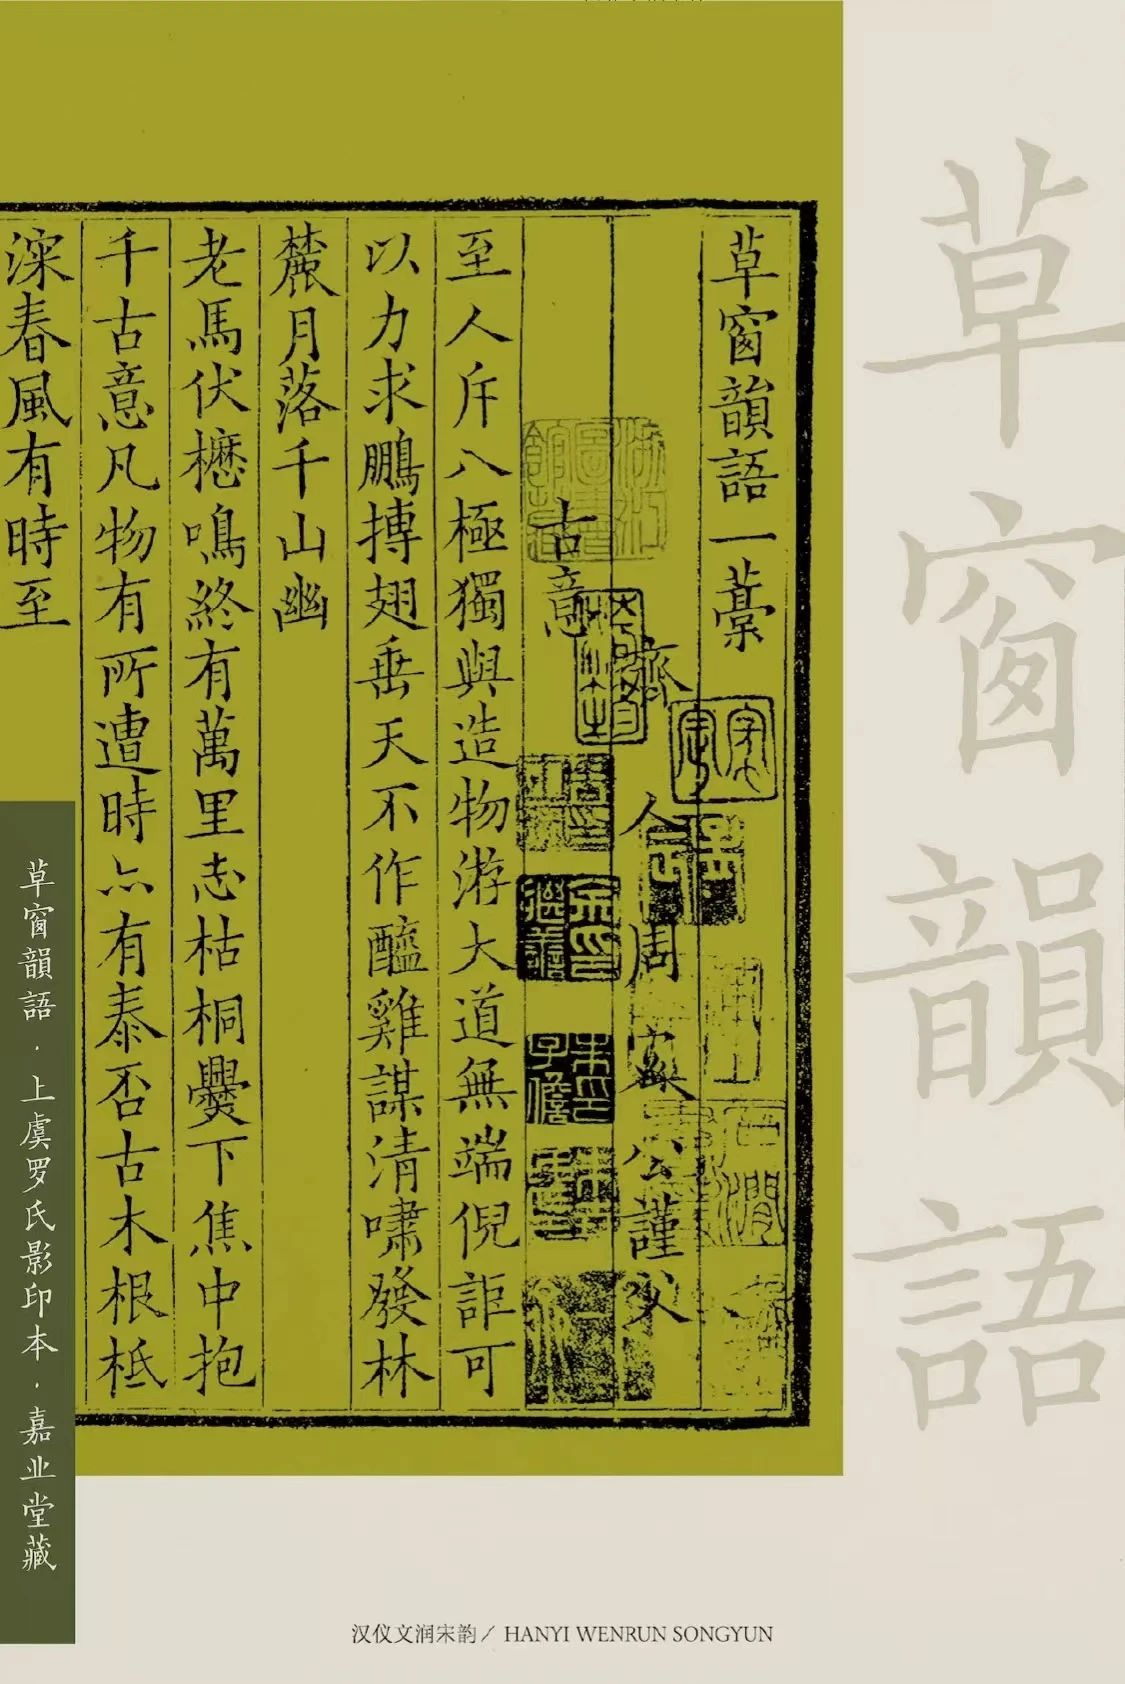 草窗韻語一藁
齊人周密公謹父
古意
至人斥八極獨與造物游大道無端倪詎可
以力求鵬摶翅垂天不作醯雞謀清嘯發林
麓月落千山幽
老馬伏櫪鳴終有萬里志枯桐爨下焦中抱
千古意凡物有所遭時亦有泰否古木根柢
深春風有時至
草窗韻語
草窗韻語·上虞罗氏影印本·嘉业堂藏
汉仪文润宋韵／HANYI WENRUN SONGYUN